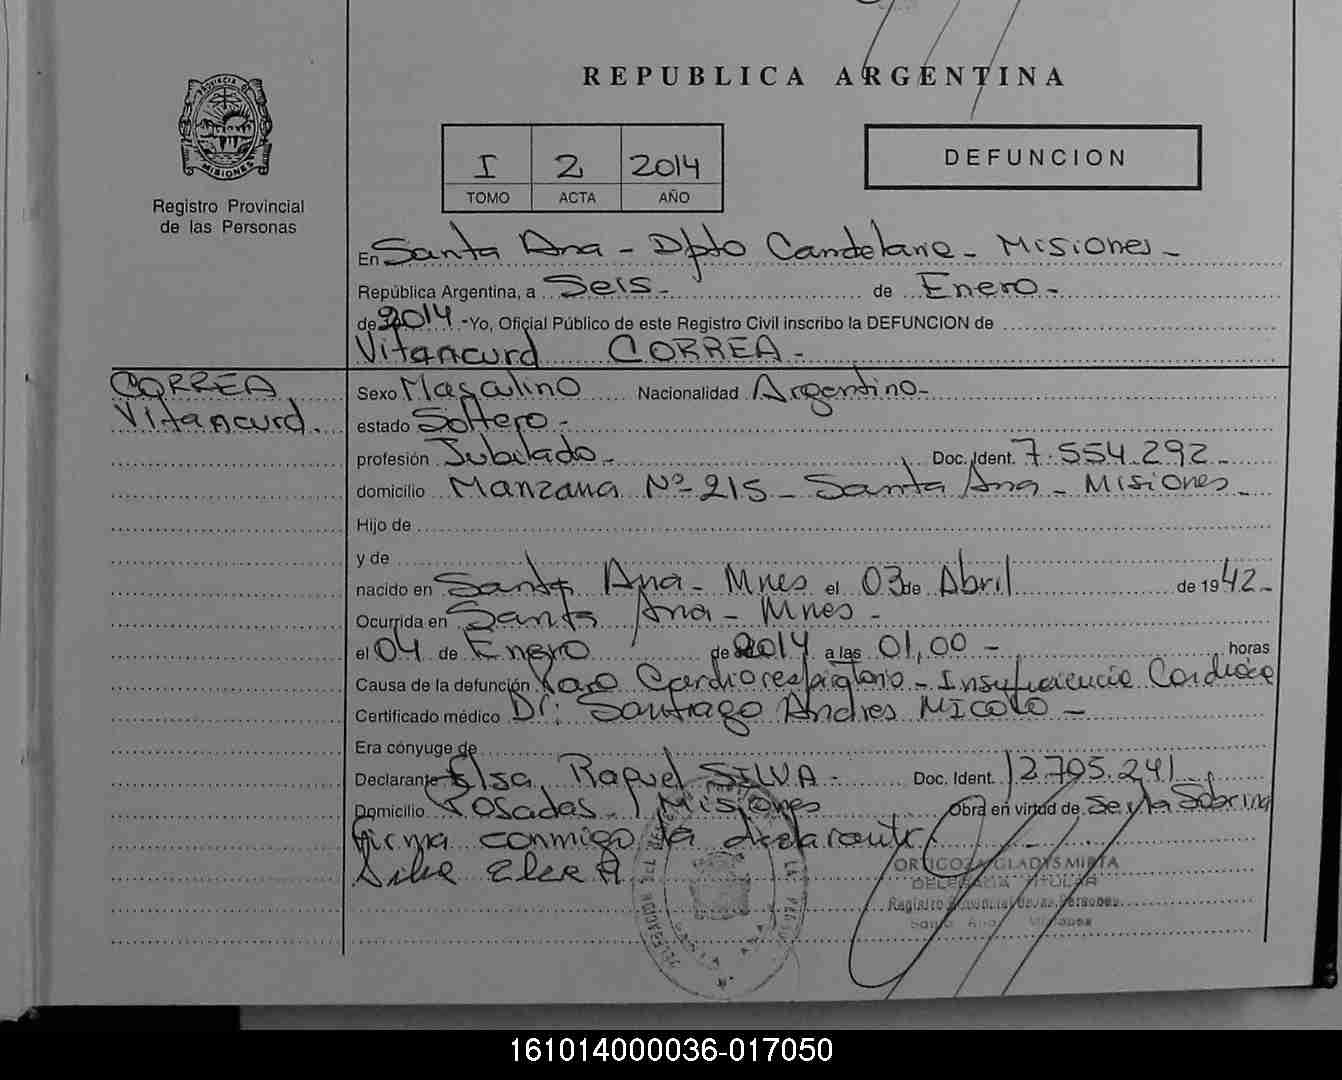 REPUBLICA ARGENTINA
PROVINCIA D
MISIONES
Registro Provincial
de las Personas
I 2 2014
TOMO ACTA AÑO
DEFUNCION
En Santa Ana - Dpto Candelaria - Misiones -
República Argentina, a Seis - de Enero -
de 2014 - Yo, Oficial Público de este Registro Civil inscribo la DEFUNCION de
Vitancurd CORREA -
CORREA
Vitancurd.
Sexo Masculino Nacionalidad Argentino -
estado Soltero -
profesión Jubilado - Doc. Ident. 7.554.292 -
domicilio Manzana Nº 215 - Santa Ana - Misiones -
Hijo de
y de
nacido en Santa Ana - Mnes el 03 de Abril de 1942 -
Ocurrida en Santa Ana - Mnes -
el 04 de Enero de 2014 a las 01,00 - horas
Causa de la defunción Paro Cardiorespiratorio - Insuficiencia Cardiaca
Certificado médico Dr: Santiago Andres MICOLO -
Era cónyuge de
Declarante Elsa Raquel SILVA - Doc. Ident. 12.705.241 -
Domicilio Posadas - Misiones Obra en virtud de Ser la Sobrina
firma conmigo la declarante
Silva Elsa R
ORTIGOZA GLADYS MIRTA
DELEGADA TITULAR
Registro Provincial de las Personas
Santa Ana Misiones
161014000036-017050